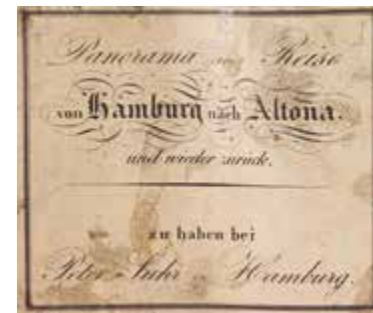 Panorama einer Reise
von Hamburg nach Altona.
und wieder zurück.
zu haben bei
Peter Suhr in Hamburg.